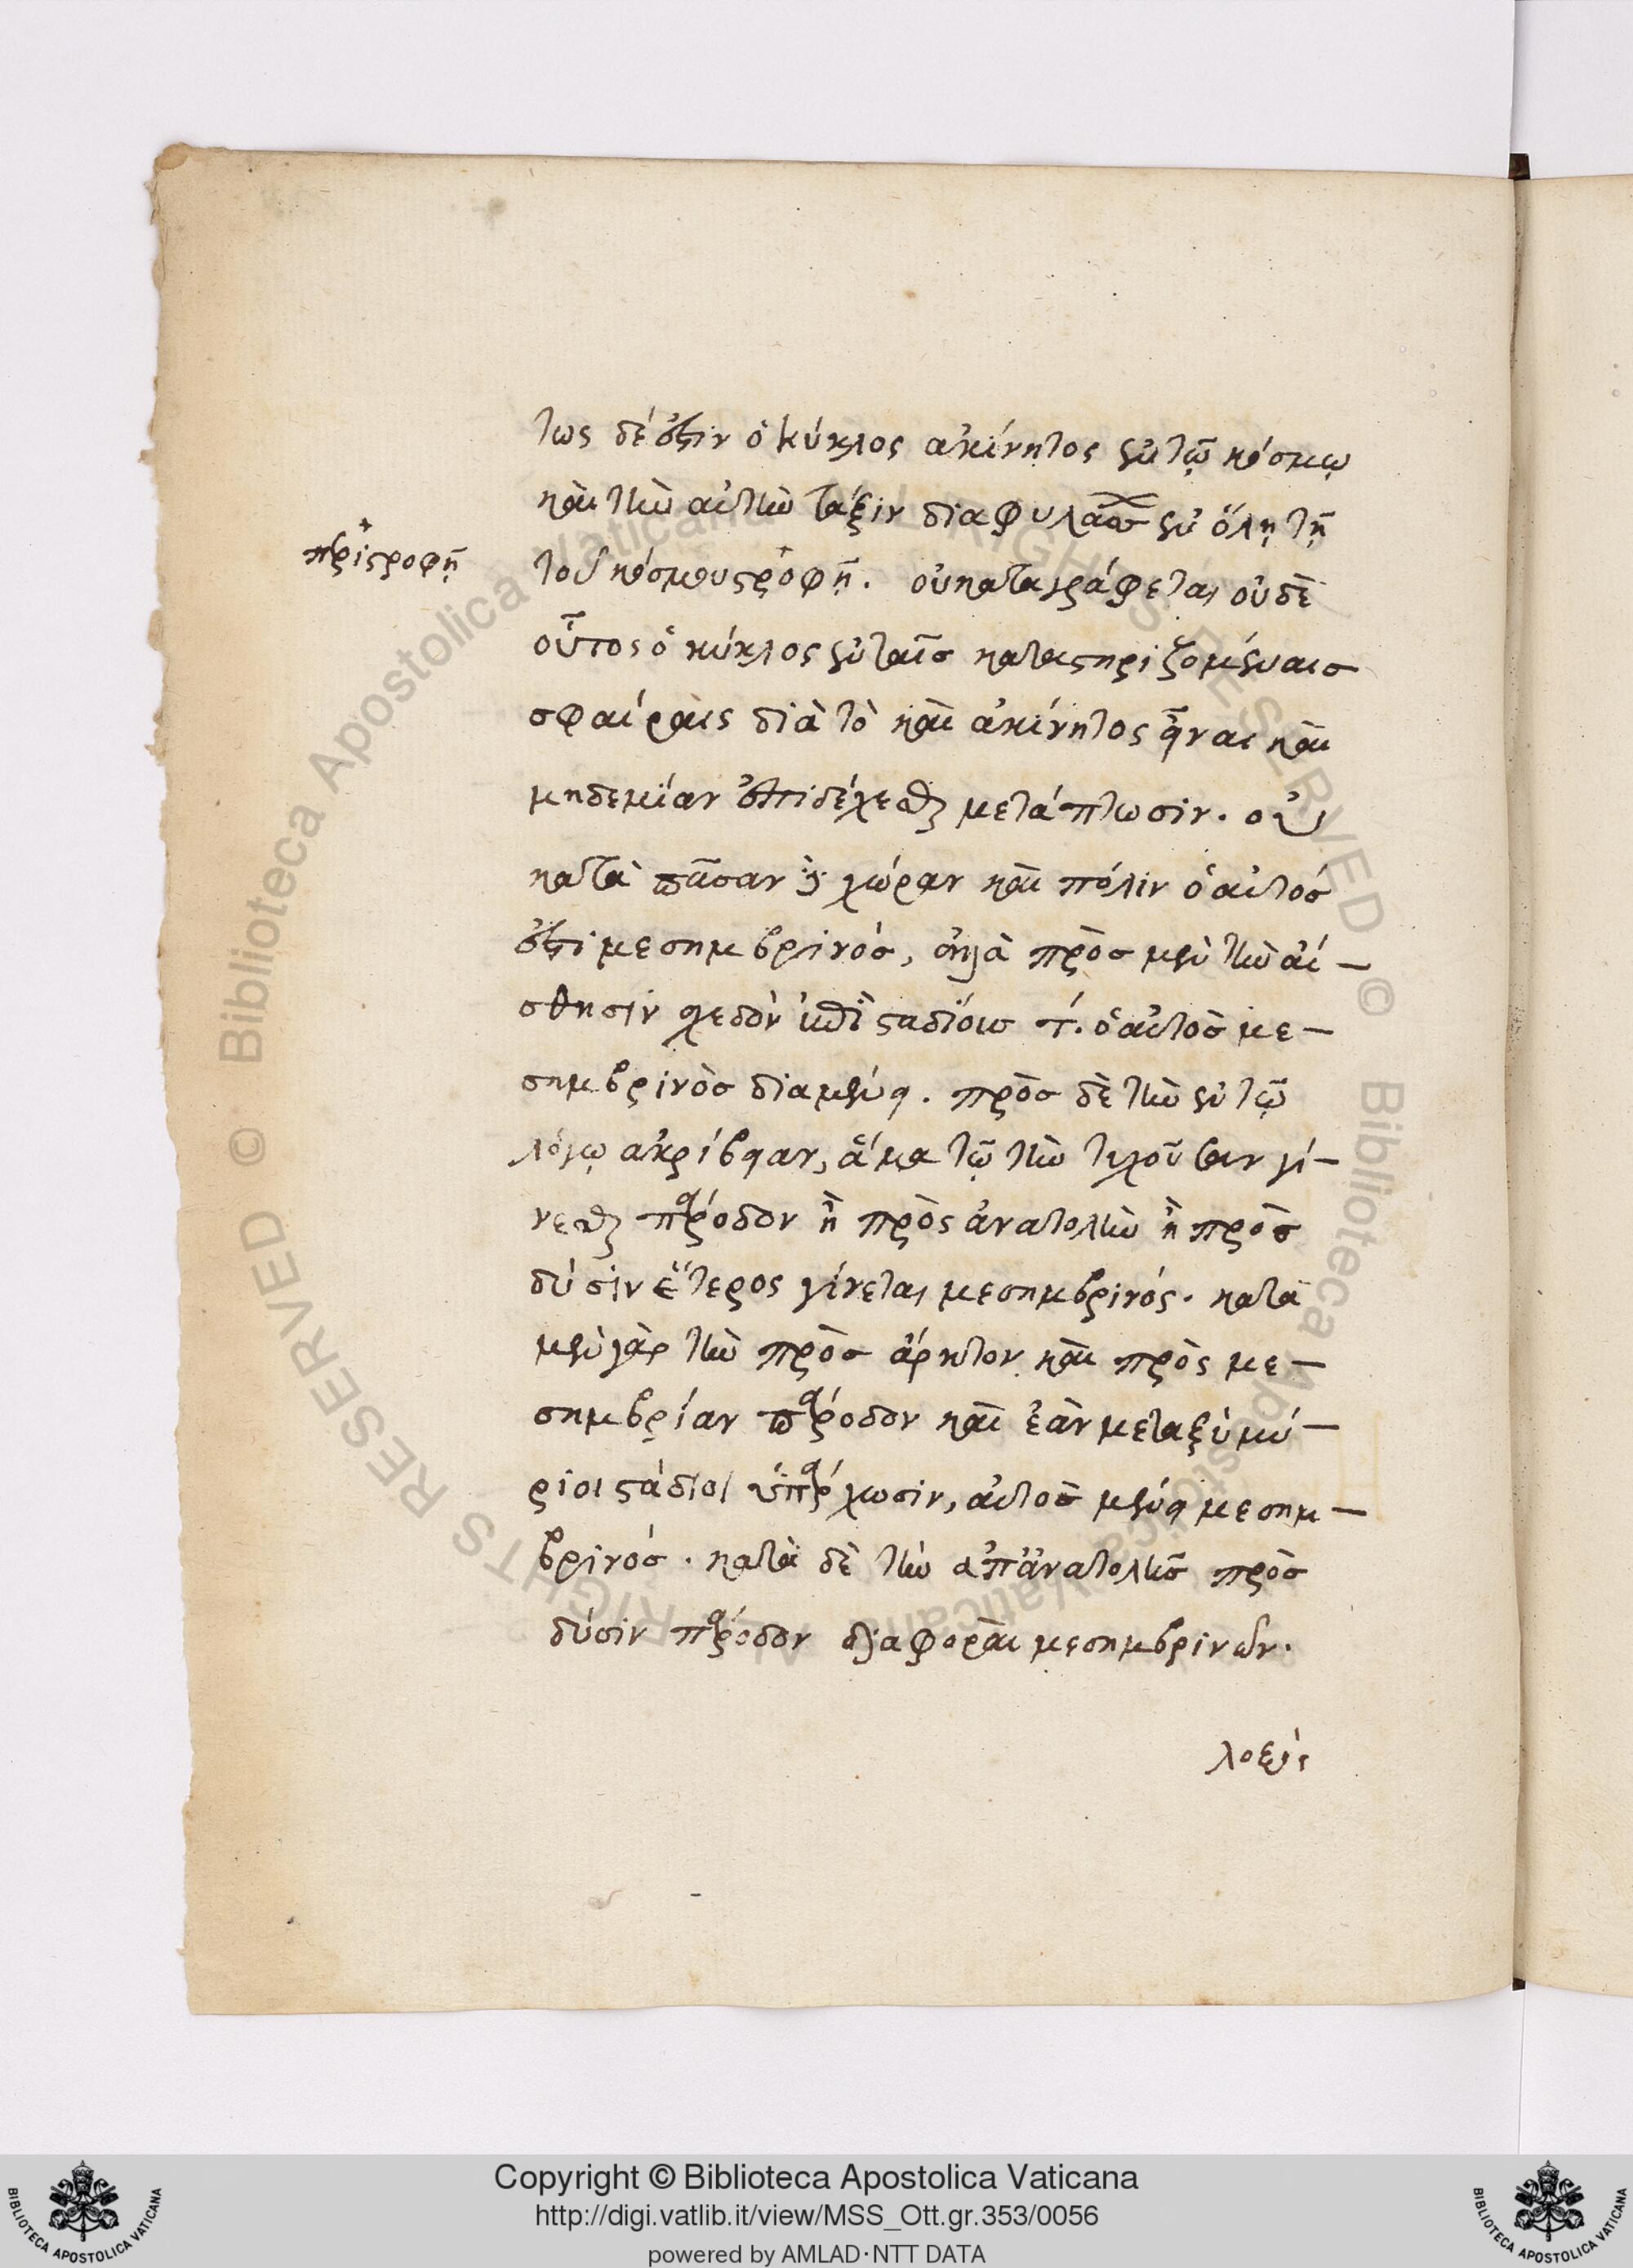 τως δέ ἐστιν ὁ κύκλος ἀκίνητος ἐν τῷ κόσμῳ
καὶ τὴν αὐτὴν τάξιν διαφυλάττων ἐν ὅλῃ τῇ
περιστροφῇ
τοῦ κόσμου στροφῇ. οὐ καταγράφεται οὐδὲ
οὗτος ὁ κύκλος ἐν ταῖς καταστηριζομέναις
σφαίραις διὰ τὸ καὶ ἀκίνητος εἶναι καὶ
μηδεμίαν ἐπιδέχεσθαι μετάπτωσιν. οὐ
κατὰ πᾶσαν δὲ χώραν καὶ πόλιν ὁ αὐτός
ἐστι μεσημβρινός, ἀλλὰ πρὸς μὲν τὴν αἴ-
σθησιν σχεδὸν ἐπὶ σταδίους τ. ὁ αὐτὸς με-
σημβρινὸς διαμένει. πρὸς δὲ τὴν ἐν τῷ
λόγῳ ἀκρίβειαν, ἅμα τῷ τὴν τυχοῦσαν γί-
νεσθαι πάροδον ἢ πρὸς ἀνατολὴν ἢ πρὸς
δύσιν ἕτερος γίνεται μεσημβρινός. κατὰ
μὲν γὰρ τὴν πρὸς ἄρκτον καὶ πρὸς με-
σημβρίαν πάροδον καὶ ἐὰν μεταξὺ μύ-
ριοι στάδιοι ὑπάρχωσιν, αὐτὸς μένει μεσημ-
βρινός. κατὰ δὲ τὴν ἀπ' ἀνατολῆς πρὸς
δύσιν πάροδον διαφοραὶ μεσημβρινῶν.
Copyright © Biblioteca Apostolica Vaticana
http://digi.vatlib.it/view/MSS_Ott.gr.353/0056
powered by AMLAD·NTT DATA